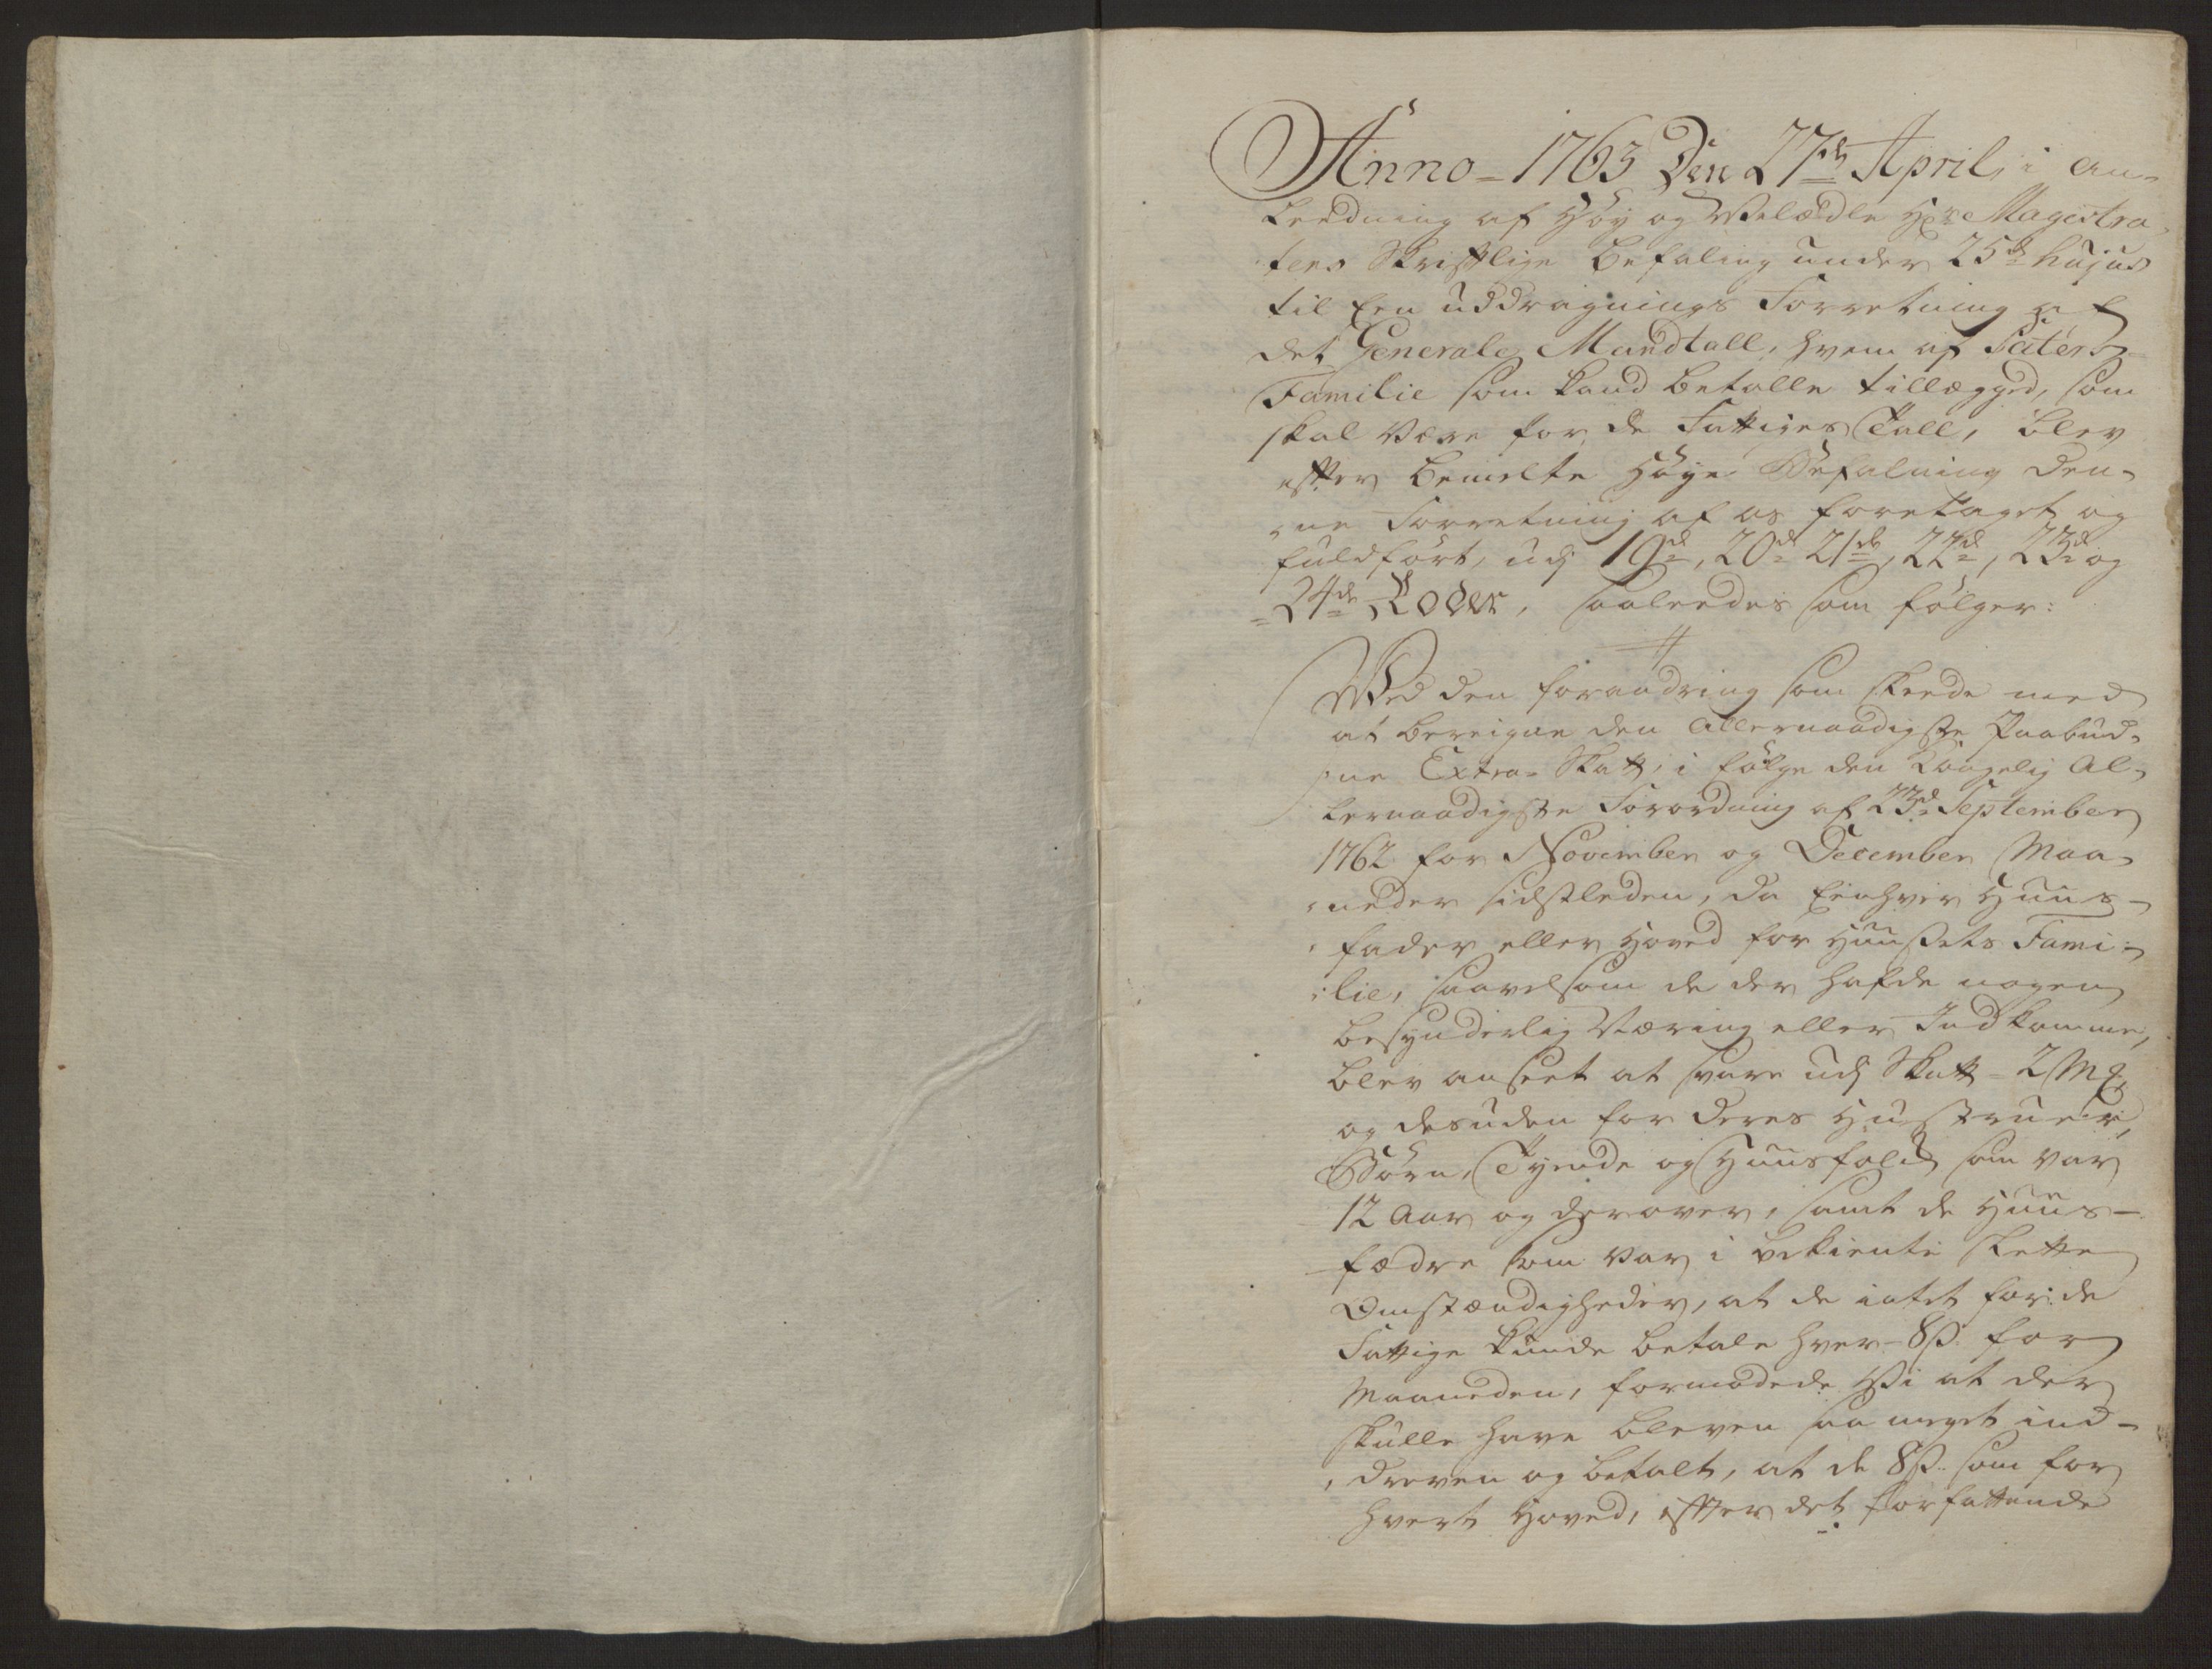 Anno = 1763 Den 27de April, i an-
leedning af Høy og Velædle Hr: Magistra-
tens Skriftlige Befaling under 25de hujus
til Een uddragnings Forretning af
det Generale Mandtall, hvem af Pater
Familie som kand betalle tillægged, som
skal være for de Fattiges Tall, blev
efter bemelte Høye Befalning den-
ne Forretning af os foretaget og
fuldført, udj 19de, 20de 21de, 22de, 23de og
24de Roder, saaleedes som følger:
Ved den forandring som skeede med
at bereigne den allernaadigste Paabud-
ne Extra- Skatt, i følge den Kongelig Al-
lernaadigste Forordning af 23de September
1762 for November og December Maa-
neder sidstleden, da Eenhver Huus-
fader eller Hoved for Huusets Fami-
lie, saavelsom de der hafde nogen
besynderlig Næring eller Indkomme,
blev anseet at svare udj Skatt = 2 Mk
og desuden for deres Hustruer,
Børn, Tyende og Huusfolk som var
12 Aar og derover, samt de Huus-
fædre som var i bekiente slette
Omstændigheder, at de intet for de
Fattige kunde betale hver = 8 s. for
Maaneden, formodede Vi at der
skulle have bleven saa meget ind-
dreven og betalt, at de 8 s. som for
hvert Hoved, efter det forfattende